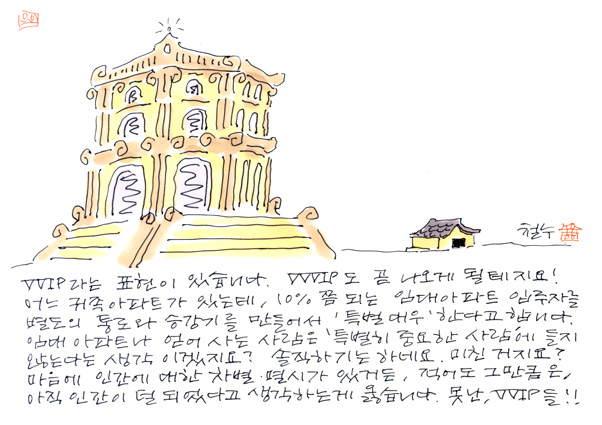 철수
VVIP라는 표현이 있습니다. VVVIP도 곧 나오게 될테지요!
어느 귀족아파트가 있는데, 10%쯤 되는 임대아파트 입주자를
별도의 통로와 승강기를 만들어서 '특별대우'한다고 합니다.
임대 아파트나 얻어 사는 사람은 '특별히 중요한 사람'에 들지
않는다는 생각이겠지요? 솔직하기는 하네요. 미친 거지요?
마음에 인간에 대한 차별·멸시가 있거든, 적어도 그만큼은,
아직 인간이 덜 되었다고 생각하는게 옳습니다. 못난, VVIP들!!